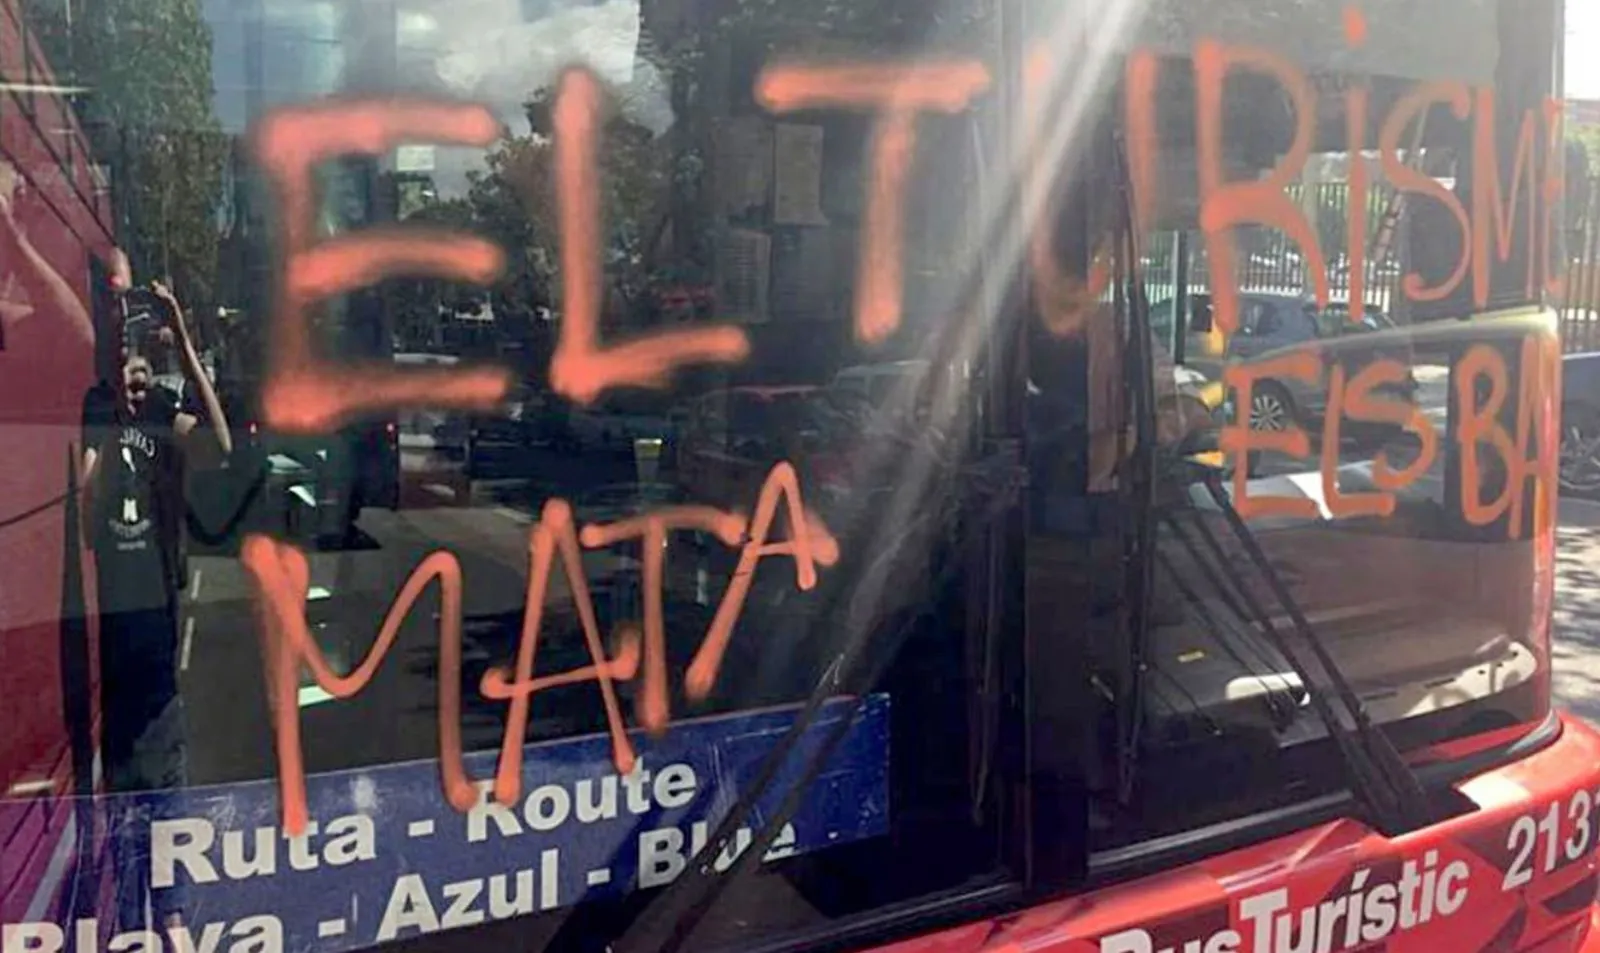 EL TURiSME
MATA ELS BA
Ruta - Route
Blava - Azul - Blue
BusTurístic 213